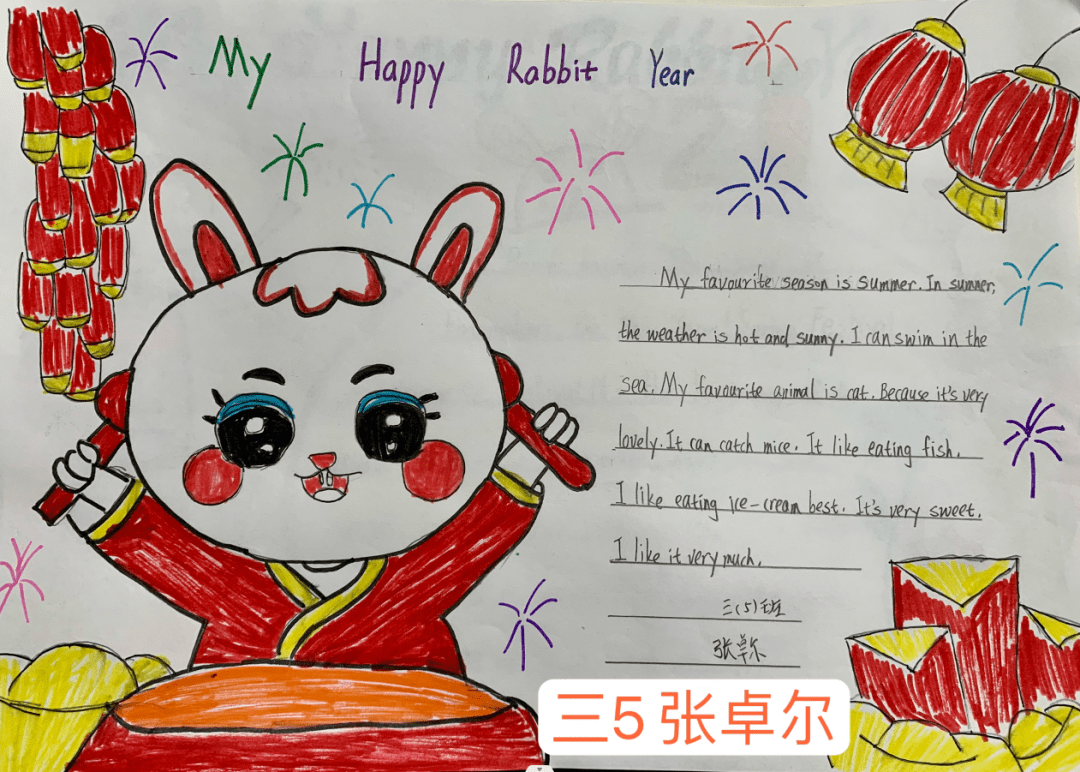 My Happy Rabbit Year
My favourite season is summer. In summer,
the weather is hot and sunny. I can swim in the
sea. My favourite animal is cat. Because it's very
lovely. It can catch mice. It like eating fish.
I like eating ice-cream best. It's very sweet.
I like it very much.
三(5)班
张卓尔
三5 张卓尔